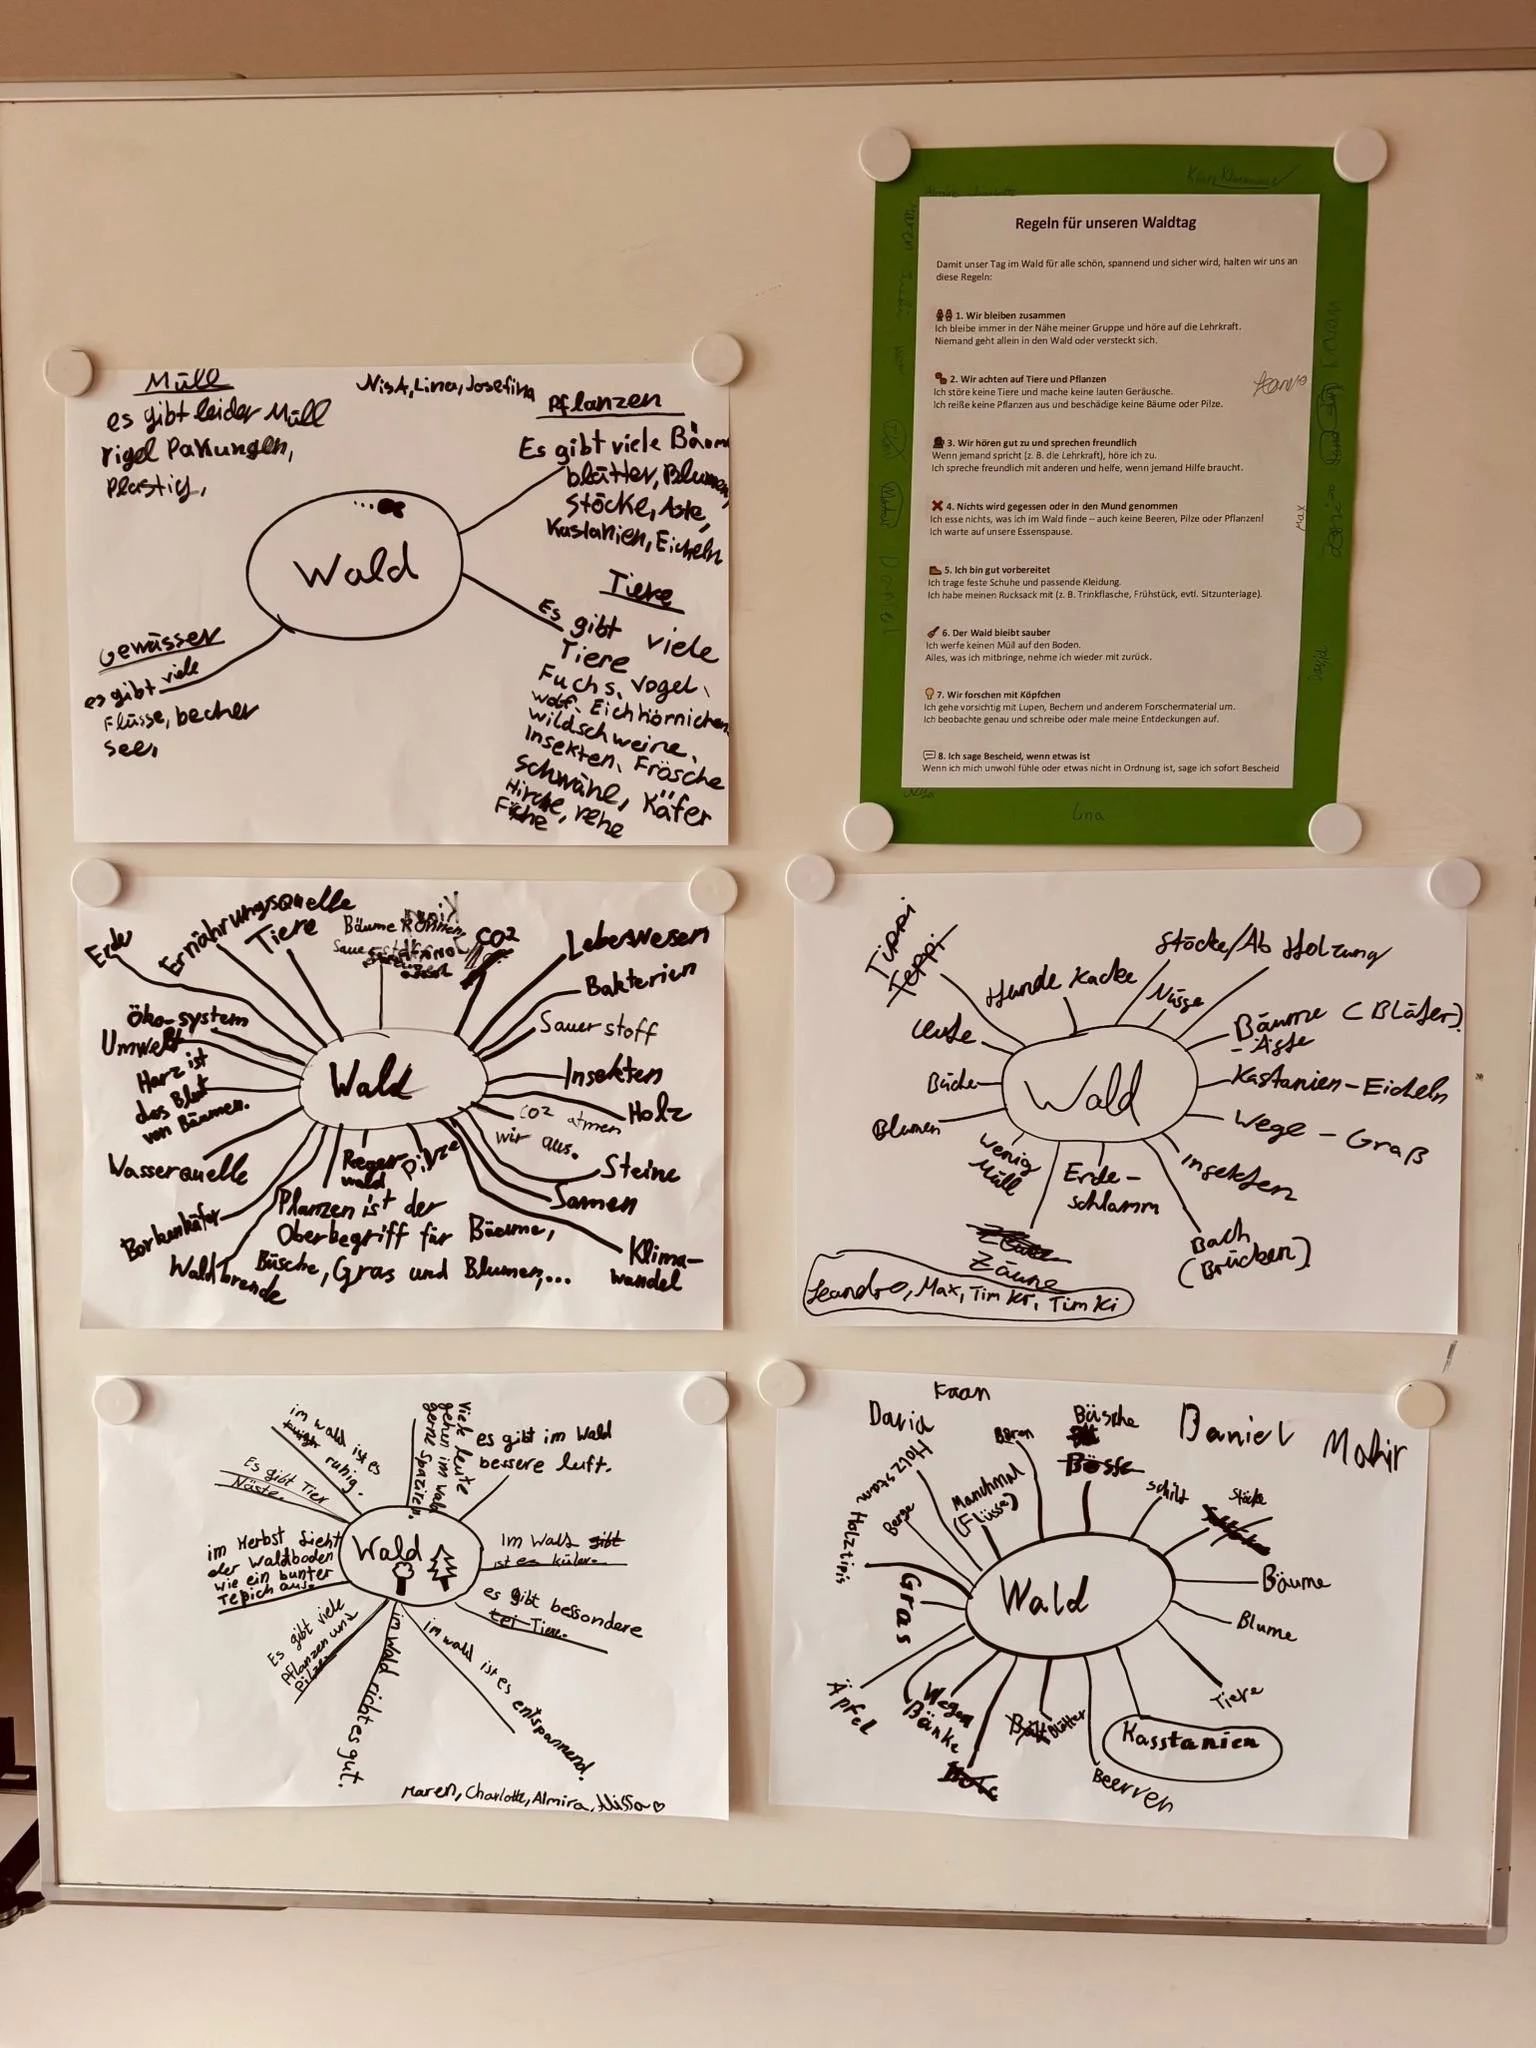 Müll
es gibt leider Müll
rigel Pakungen,
Plastig,
Nisa, Lina, Josefina
Pflanzen
Es gibt viele Bäum
blätter, Blumen,
Stöcke, Äste,
Kastanien, Eicheln
Wald
Tiere
Es gibt viele
Tiere
Fuchs, Vogel,
Wolf, Eichhörnichen
Wildschweine,
Insekten, Frösche
Schwäne, Käfer
Hirche, rehe
Fiche
Gewässer
es gibt viele
Flüsse, becher
See,
Regeln für unseren Waldtag
Damit unser Tag im Wald für alle schön, spannend und sicher wird, halten wir uns an
diese Regeln:
1. Wir bleiben zusammen
Ich bleibe immer in der Nähe meiner Gruppe und höre auf die Lehrkraft.
Niemand geht allein in den Wald oder versteckt sich.
2. Wir achten auf Tiere und Pflanzen
Ich störe keine Tiere und mache keine lauten Geräusche.
Ich reiße keine Pflanzen aus und beschädige keine Bäume oder Pilze.
3. Wir hören gut zu und sprechen freundlich
Wenn jemand spricht (z. B. die Lehrkraft), höre ich zu.
Ich spreche freundlich mit anderen und helfe, wenn jemand Hilfe braucht.
4. Nichts wird gegessen oder in den Mund genommen
Ich esse nichts, was ich im Wald finde – auch keine Beeren, Pilze oder Pflanzen!
Ich warte auf unsere Essenspause.
5. Ich bin gut vorbereitet
Ich trage feste Schuhe und passende Kleidung.
Ich habe meinen Rucksack mit (z. B. Trinkflasche, Frühstück, evtl. Sitzunterlage).
6. Der Wald bleibt sauber
Ich werfe keinen Müll auf den Boden.
Alles, was ich mitbringe, nehme ich wieder mit zurück.
7. Wir forschen mit Köpfchen
Ich gehe vorsichtig mit Lupen, Bechern und anderem Forschermaterial um.
Ich beobachte genau und schreibe oder male meine Entdeckungen auf.
8. Ich sage Bescheid, wenn etwas ist
Wenn ich mich unwohl fühle oder etwas nicht in Ordnung ist, sage ich sofort Bescheid
Max
Daniel
David
Lina
Erde
Ernährungsquelle
Tiere
Bäume können
CO2
Lebewesen
Bakterien
Sauerstoff
Insekten
Holz
CO2 atmen
wir aus.
Steine
Samen
Klima-
wandel
Wald
Öko-system
Umwelt
Harz ist
das Blut
von Bäumen.
Wasserquelle
Borkenkäfer
Waldbrende
Regen
wald
Pilze
Pflanzen ist der
Oberbegriff für Bäume,
Büsche, Gras und Blumen,...
Hunde Kacke
Stöcke/Ab Holzung
Nüsse
Bäume (Bläter)
- Äste
Kastanien-Eicheln
Wege - Graß
Insekten
Bach
(Brücken)
Erde-
schlamm
Zäune
wenig
Müll
Blumen
Büche
Leute
Wald
Leandro, Max, Tim Kr, Tim Ki
im wald ist es
ruhig.
Viele leute
gehen im Wald
gerne Spaziren.
es gibt im Wald
bessere luft.
Es gibt Tier
Näste.
Im Wald gibt
ist es küler.
Wald
im Herbst sieht
der Waldboden
wie ein bunter
Tepich aus.
es gibt bessondere
Tiere.
Es gibt viele
Pflanzen und
Pilze.
im wald richt es gut.
im wald ist es entspannend.
Maren, Charlotte, Almira, Nissa
Kaan
David
Daniel
Mahir
Holzstam
Holztipis
Berge
Manchmal
(Flüsse)
Bären
Büsche
Schilf
Stöcke
Bäume
Blume
Tiere
Wald
Gras
Äpfel
Wegen
Bänke
Blätter
Beerren
Kasstanien